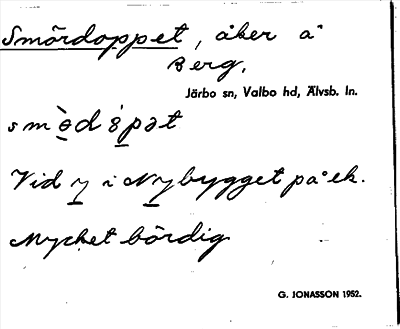 Smördoppet, åker å
Berg.
Järbo sn, Valbo hd, Älvsb. ln.
Vid y i Nybygget på ek.
Mycket bördig
G. JONASSON 1952.